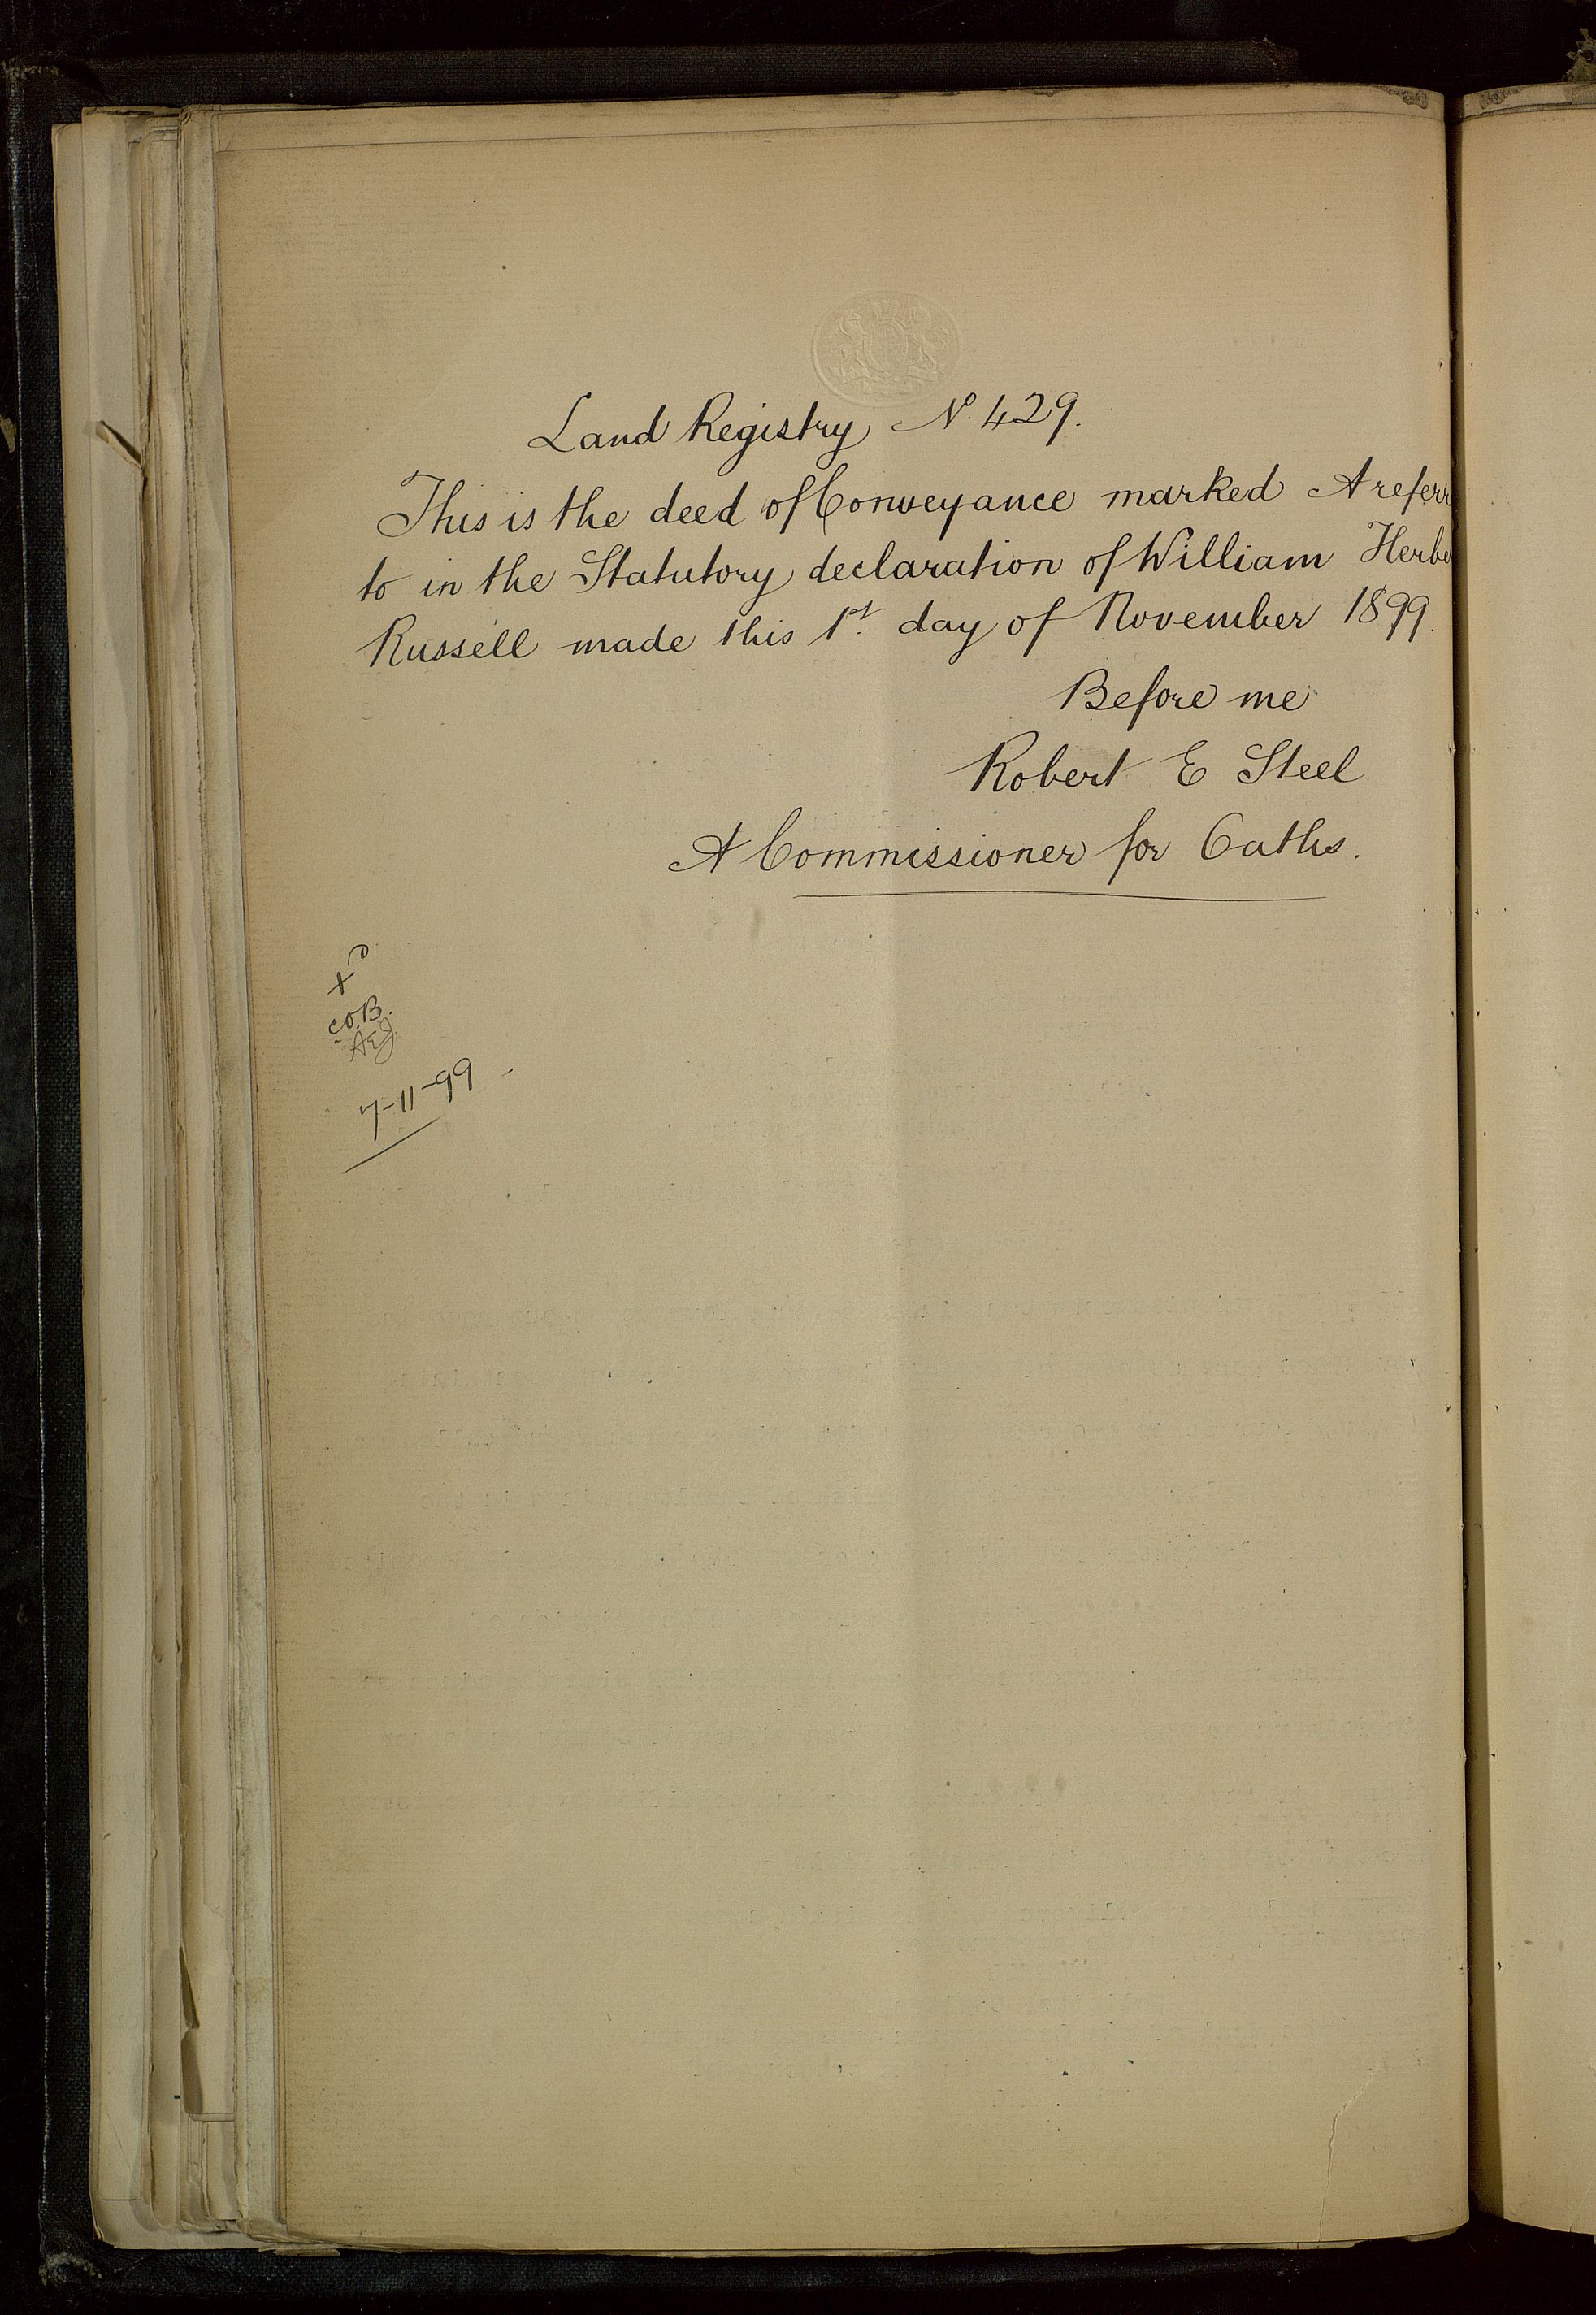 Land Registry No. 429.
This is the deed of Conveyance marked A referr
to in the Statutory declaration of William Herbe
Russell made this 1st. day of November 1899.
Before me
Robert E Steel
A Commissioner for Oaths.
C.O.B.
7-11-99